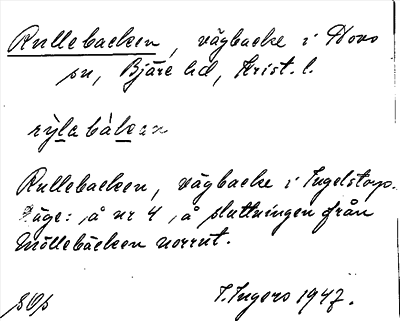 Rullebacken, vägbacke i Hovs
sn, Bjäre hd, Krist. l.
rỳlabàkan
Rullebacken, vägbacke i Ingelstorp.
Läge: å nr 4, å sluttningen från
Möllebäcken norrut.
I. Ingers 1947.